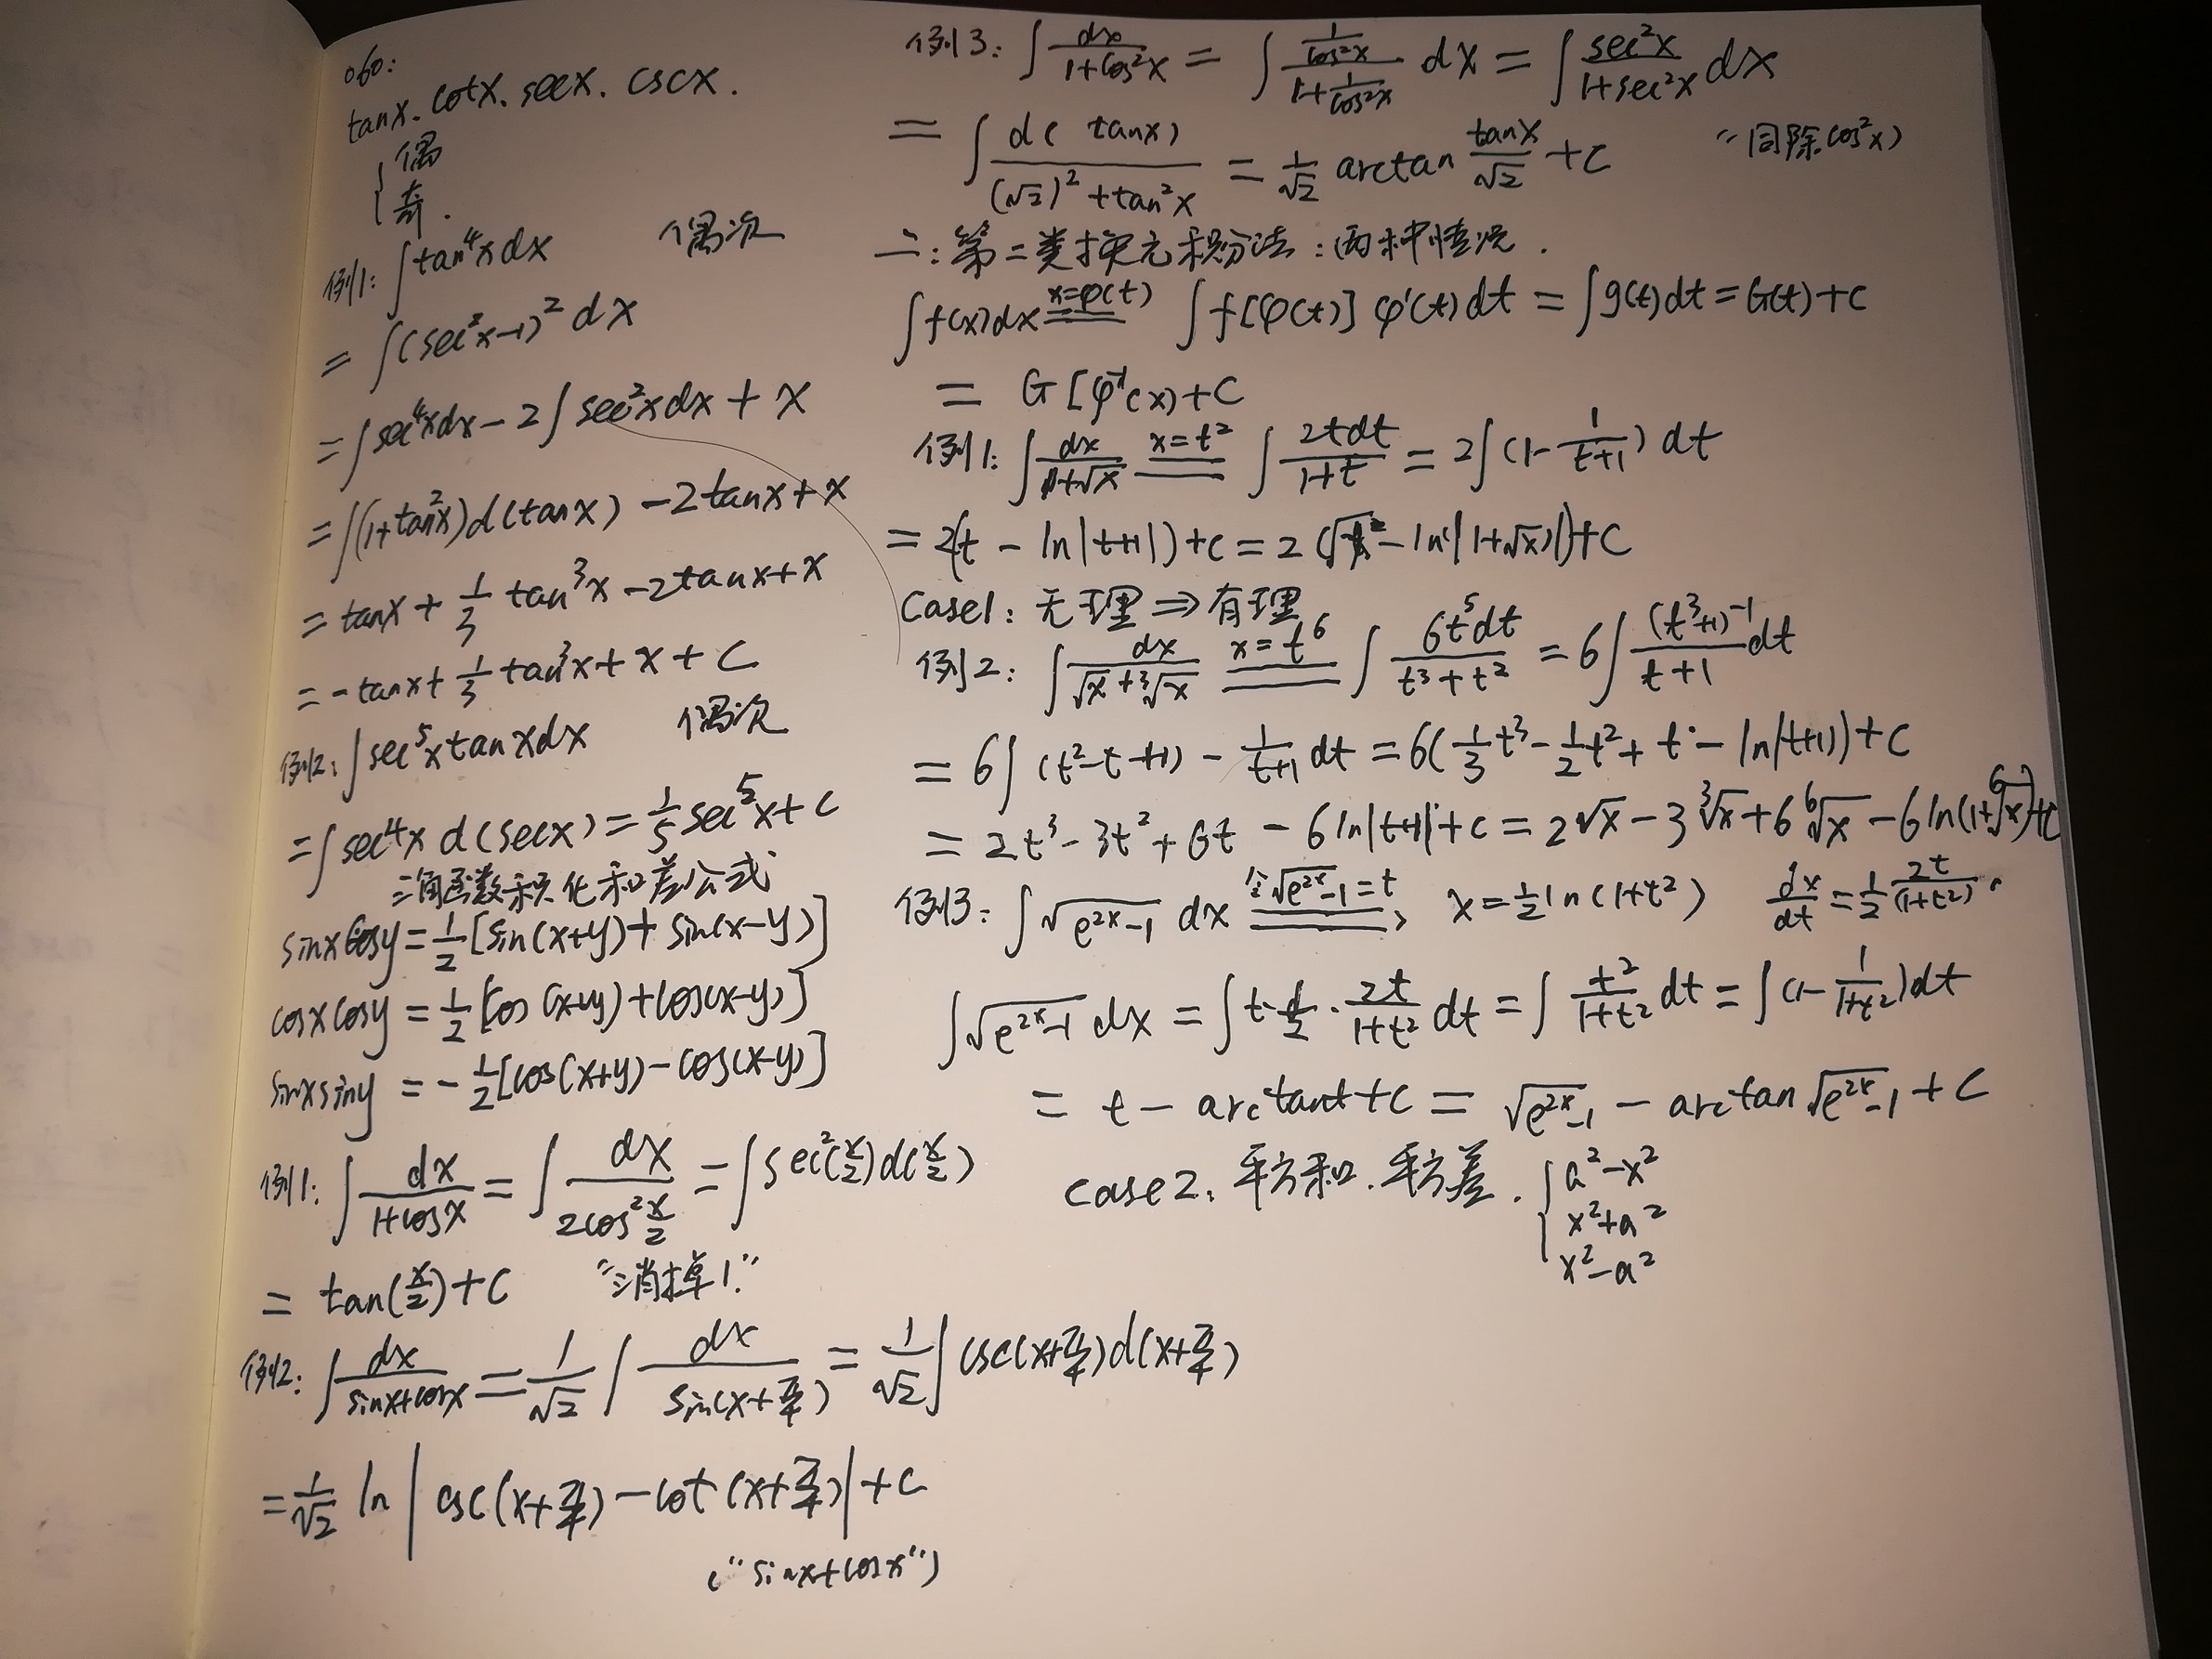 060:
tanx. cotx. secx. cscx.
{偶
奇.
例1: ∫tan⁴xdx 偶次
= ∫(sec²x-1)²dx
= ∫sec⁴xdx - 2∫sec²xdx + x
= ∫(1+tan²x)d(tanx) - 2tanx + x
= tanx + 1/3 tan³x - 2tanx + x
= -tanx + 1/3 tan³x + x + C
例2: ∫sec⁵xtanxdx 偶次
= ∫sec⁴x d(secx) = 1/5 sec⁵x + C
三角函数积化和差公式
sinxcosy = 1/2[sin(x+y) + sin(x-y)]
cosxcosy = 1/2[cos(x+y) + cos(x-y)]
sinxsiny = -1/2[cos(x+y) - cos(x-y)]
例1: ∫dx/(1+cosx) = ∫dx/(2cos²(x/2)) = ∫sec²(x/2)d(x/2)
= tan(x/2) + C “消掉1.”
例2: ∫dx/(sinx+cosx) = 1/√2 ∫dx/sin(x+π/4) = 1/√2 ∫csc(x+π/4)d(x+π/4)
= 1/√2 ln|csc(x+π/4) - cot(x+π/4)| + C
(“sinx+cosx”)
例3: ∫dx/(1+cos²x) = ∫(1/cos²x)/(1+1/cos²x) dx = ∫sec²x/(1+sec²x) dx
= ∫d(tanx)/((√2)²+tan²x) = 1/√2 arctan tanx/√2 + C “同除cos²x)
二: 第二类换元积分法: 两种情况.
∫f(x)dx x=φ(t) ∫f[φ(t)]φ'(t)dt = ∫g(t)dt = G(t) + C
= G[φ⁻¹(x) + C
例1: ∫dx/(1+√x) x=t² ∫2tdt/(1+t) = 2∫(1 - 1/(t+1))dt
= 2(t - ln|t+1|) + C = 2(√x - ln|1+√x|) + C
Case1: 无理 ⇒ 有理
例2: ∫dx/(√x+³√x) x=t⁶ ∫6t⁵dt/(t³+t²) = 6∫((t³+1)-1)/(t+1) dt
= 6∫(t²-t+1) - 1/(t+1) dt = 6(1/3 t³ - 1/2 t² + t - ln|t+1|) + C
= 2t³ - 3t² + 6t - 6ln|t+1| + C = 2√x - 3³√x + 6⁶√x - 6ln(1+⁶√x) + C
例3: ∫√(e²ˣ-1) dx 令√(e²ˣ-1)=t x = 1/2 ln(1+t²) dx/dt = 1/2 2t/(1+t²)
∫√(e²ˣ-1) dx = ∫t·1/2·2t/(1+t²) dt = ∫t²/(1+t²) dt = ∫(1 - 1/(1+t²))dt
= t - arctant + C = √(e²ˣ-1) - arctan√(e²ˣ-1) + C
case2. 平方和. 平方差. {a²-x²
x²+a²
x²-a²